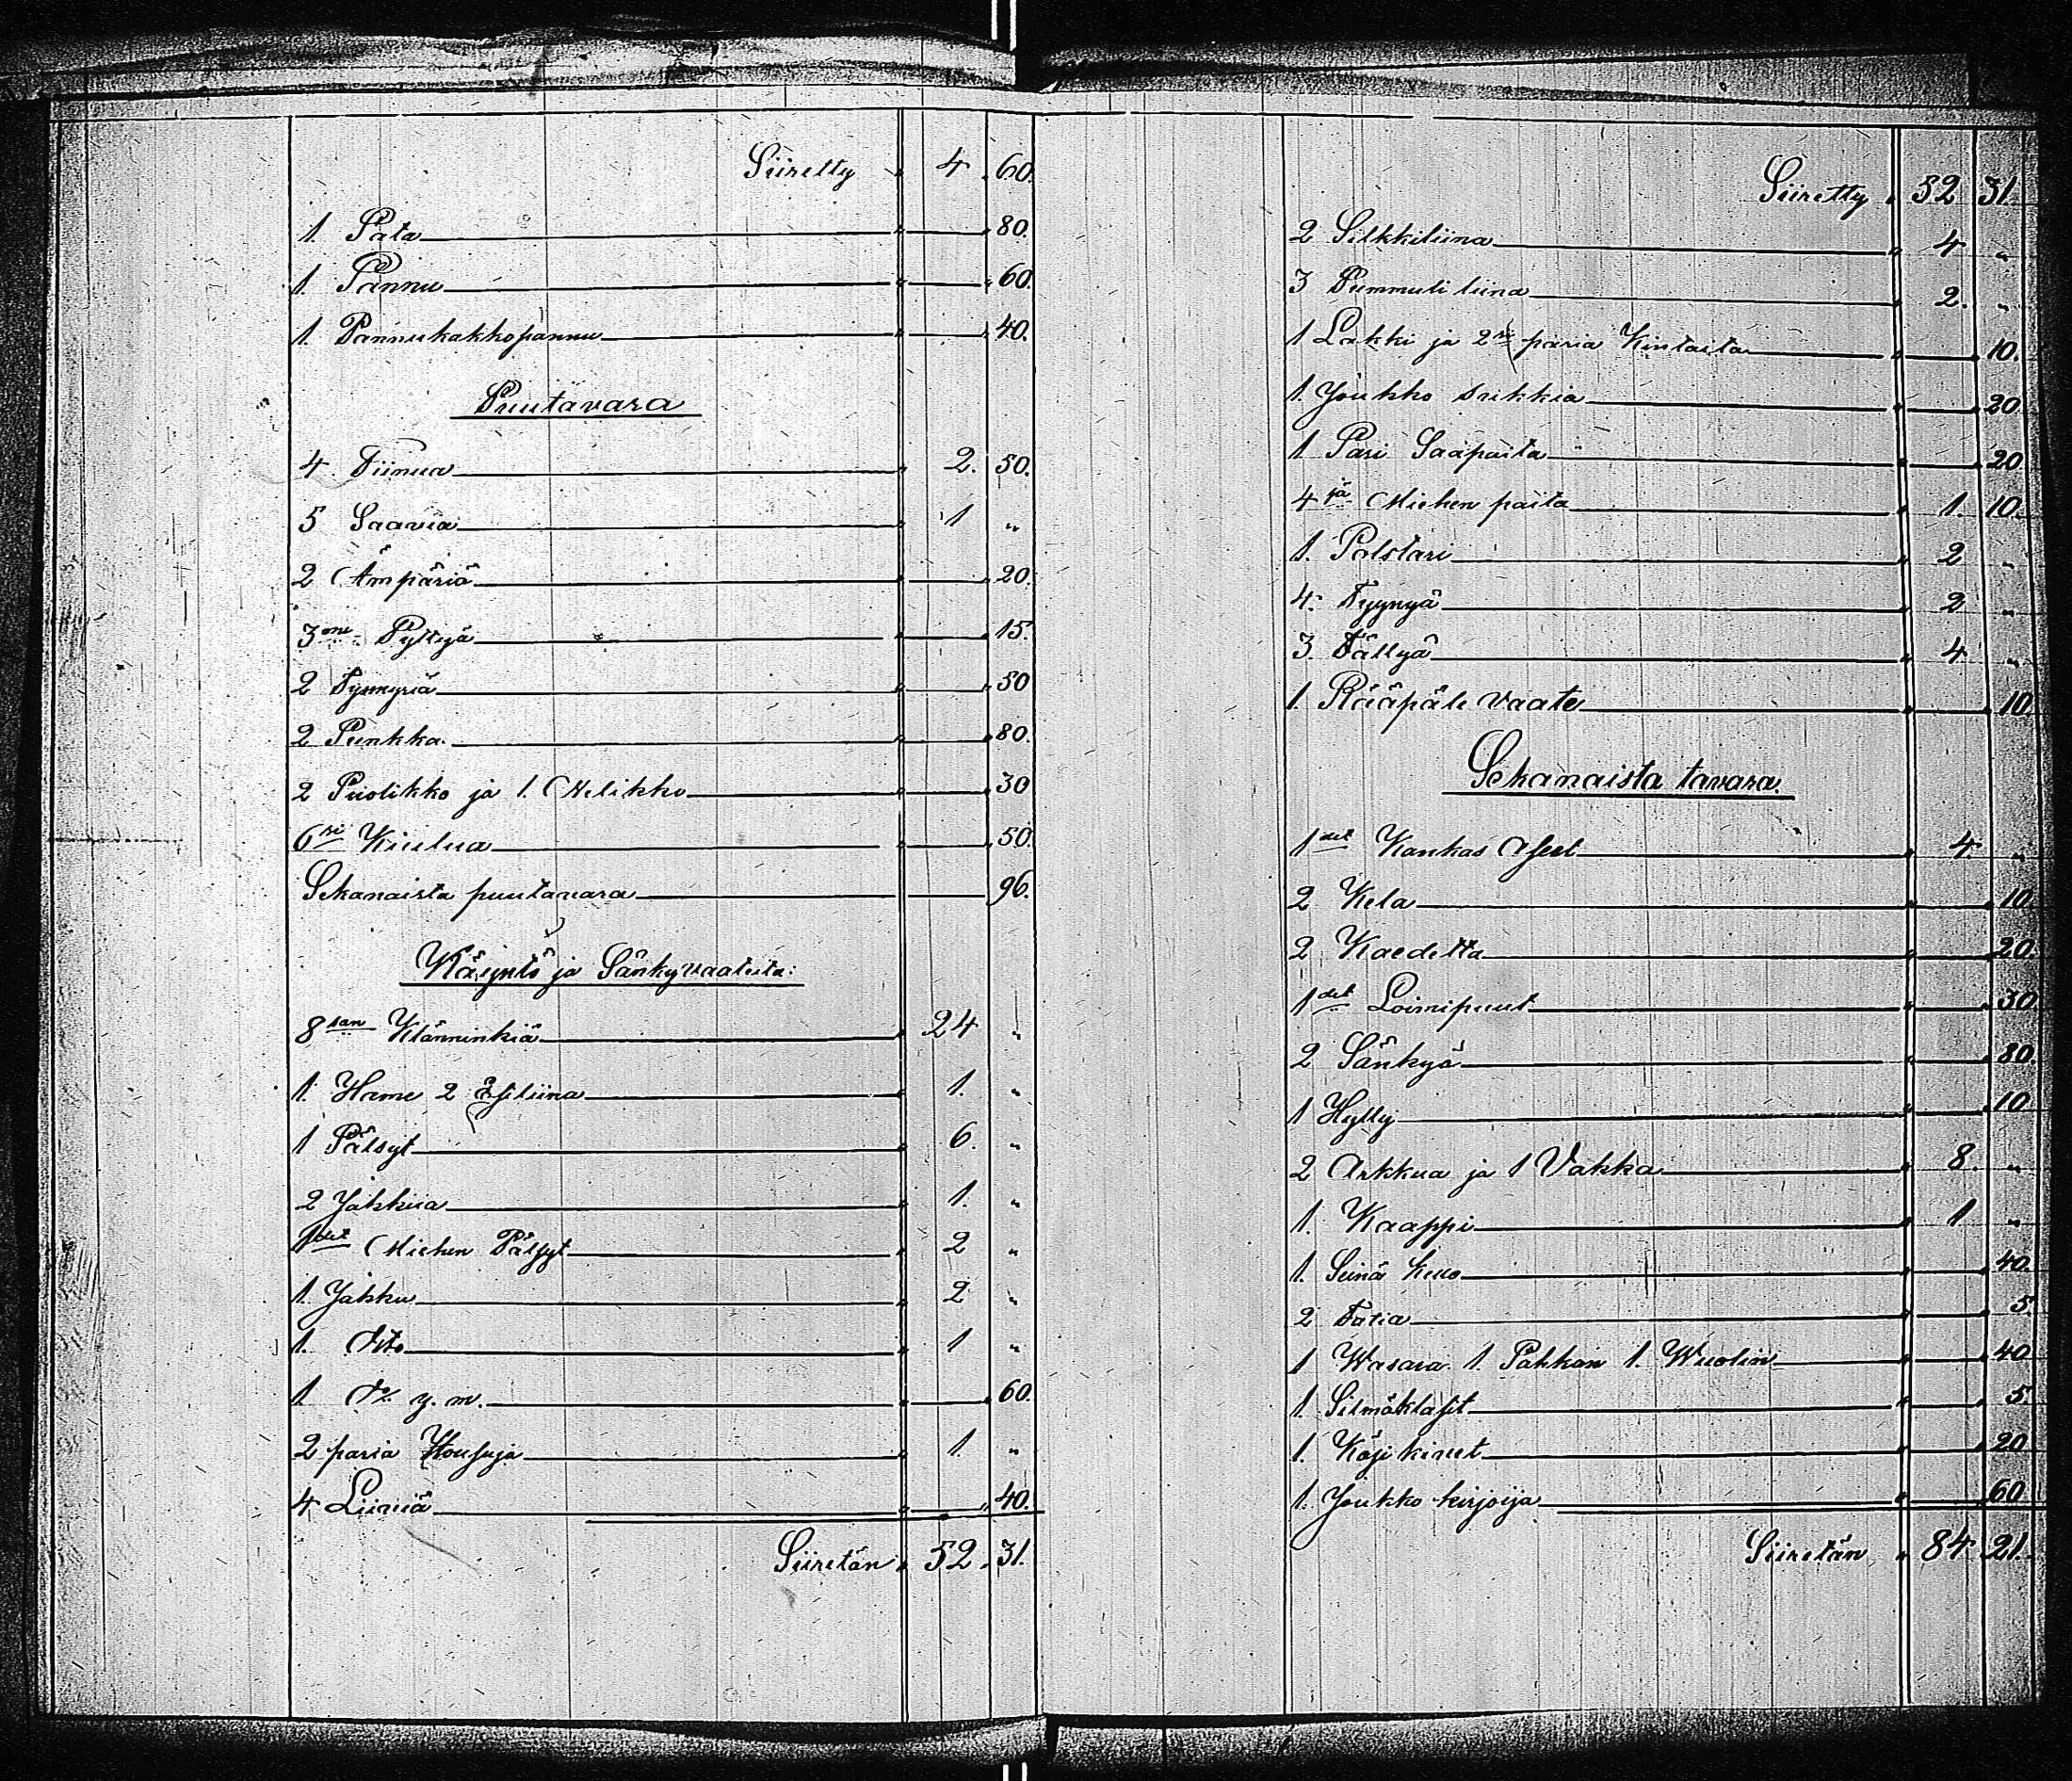 Siiretty " 4 . 60.
1. Pata " " 80.
1. Pannu " " 60.
1 Pannukakkopannu " " 40.
Puutavara
4 Tiinua " 2. 50.
5 Saavia " 1 "
2 Ämpäriä " " 20.
3me Pyttyä " " 15.
2 Tynnyriä " " 50
2 Punkka " " 80.
2 Puolikko ja 1. Nelikko " " 30
6si Kiulua " " 50.
Sekanaista puutavara " 96.
Käsyntö ja Sänkyvaateita:
8san Klänninkiä " 24 "
1. Hame 2 Esiliina " 1. "
1 Pälsyt " 6. "
2 Jakkua " 1. "
1det Miehen Pälsyt " 2 "
1. Jakku " 2 "
1. Dito " 1 "
1 Do y. m. " " 60.
2 paria Housuja " 1. "
4 Liiviä " " 40.
Siiretän " 52 . 31.
Siiretty " 52 31.
2 Silkkiliina " 4 "
3 Pummuli liina " 2. "
1 Lakki ja 2si paria Kintaita " " 10.
1. Joukko sukkia " " 20.
1 Pari Saapaita " " 20
4jä Miehen paita " 1. 10.
1. Polstari " 2 "
4. Tyynyä " 2 "
3. Tällyä " 4 "
1. Rääpäle vaate " " 10
Sekanaista tavara.
1det Kankas " 4 "
2 Kela " " 10
2 Kaedetta " " 20.
1det Loimipuut " " 30
2 Sänkyä " " 80.
1 Hylly " " 10
2 Arkkua ja 1 Vakka " 8. "
1. Kaappi " 1 "
1. Seinä Kello " " 40
2 Fatia " " 5.
1 Wasara 1. Pahkan 1. Wuolin " " 40
1. Silmäklasit " " 5.
1. Käsikivet " " 20
1. Joukko kirjoija " " 60
Siiretän " 84 21.